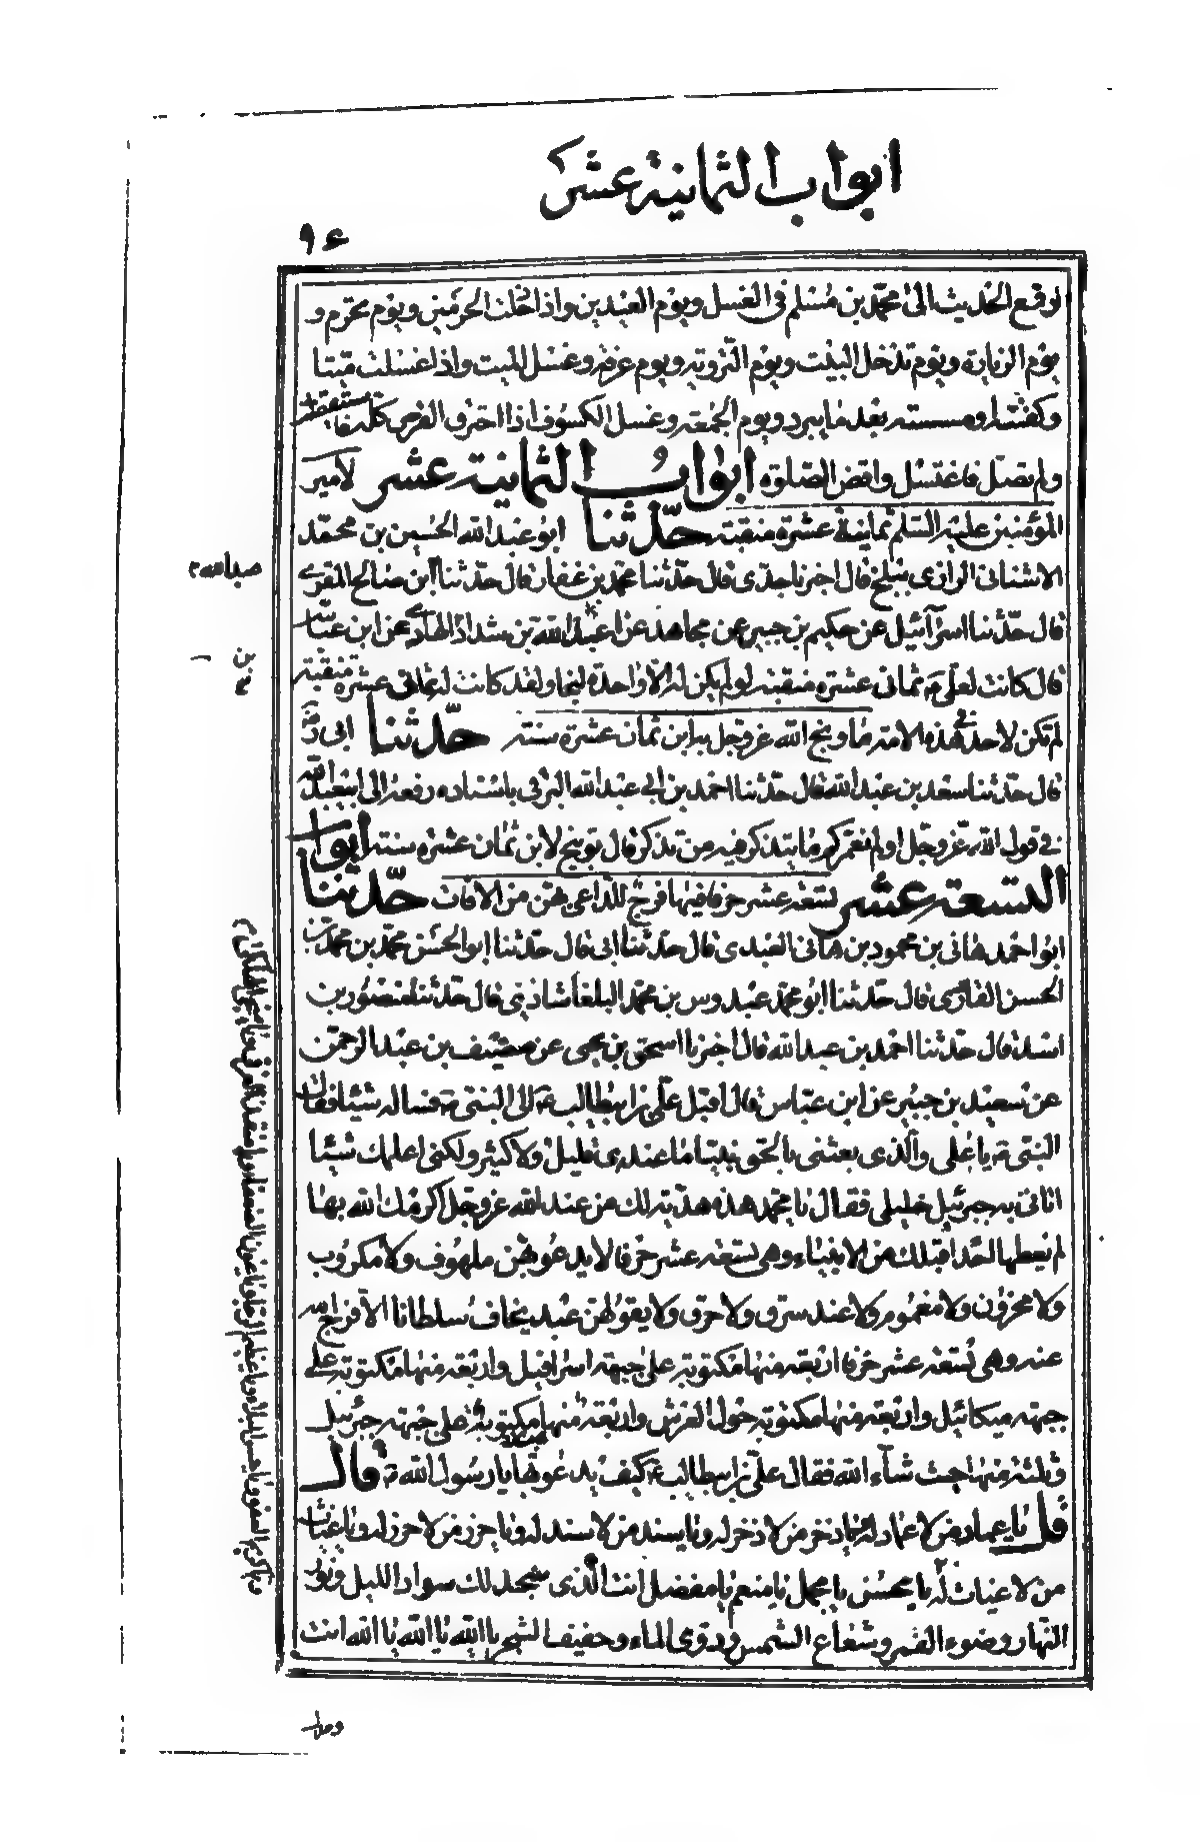 ابواب الثمانیة عشر
٩٤
رفع الحدیث الی محمّد بن مسلم فی الغسل ویوم العیدین واذا دخلت الحرمین ویوم تحرم و
یوم الزیارة ویوم تدخل البیت ویوم الترویة ویوم عرفة وغسل المیت واذا غسلت میّتا
وکفنته او مسسته بعد ما یبرد ویوم الجمعة وغسل الکسوف اذا احترق القرص کلّه فاستیقظت
ولم تصلّ فاغتسل واقض الصلوة ابواب الثمانیة عشر لامیر
المؤمنین علیه السلم ثمانیة عشرة منقبة حدّثنا ابو عبد الله الحسین بن محمّد
الاشنانی الرازی ببلخ قال اخبرنا جدّی قال حدّثنا محمّد بن غفار قال حدّثنا ابن صالح المقری
قال حدّثنا اسرآئیل عن حکیم بن جبیر عن مجاهد عن عبد الله بن شداد الهاد عن ابن عبّاس
قال کانت لعلیّ ثمانی عشرة منقبة لو لم یکن له الّا واحدة لنجا ولقد کانت له ثمانی عشرة منقبة
لم تکن لاحد فی هذه الامّة ما وبخ الله عزوجل به ابن ثمان عشرة سنة حدّثنا ابی
قال حدّثنا سعد بن عبد الله قال حدّثنا احمد بن ابی عبد الله البرقی باسناده رفعه الی ابیعبدالله
فی قول الله عزوجلّ اولم نعمّرکم ما یتذکر فیه من تذکر قال توبیخ لابن ثمان عشرة سنة ابوا
التسعة عشر تسعة عشر حرفا فیها فرج للدّاعی بهنّ من الافات حدّثنا
ابو احمد هانی بن محمود بن هانی العبدی قال حدّثنا ابی قال حدّثنا ابو الحسن محمّد بن محمّد بن
الحسن القاری قال حدّثنا ابو محمّد عبدوس بن محمّد البلغاشاذنی قال حدّثنا منصور بن
اسد قال حدّثنا احمد بن عبد الله قال اخبرنا اسحق بن یحیی عن خصیف بن عبد الرحمن
عن سعید بن جبیر عن ابن عبّاس قال اقبل علیّ بن ابیطالب الی النبیّ فساله شیئا فقال
النبیّ یا علی والّذی بعثنی بالحق نبیّا ما عندی قلیل ولا کثیر ولکنی اعلمک شیئا
اتانی به جبرئیل خلیلی فقال یا محمّد هذه هدیّة لک من عند الله عزوجلّ اکرمک الله بها
لم یعطها احدا قبلک من الانبیاء وهی تسعة عشر حرفا لا یدعو بهنّ ملهوف ولا مکروب
ولا محزون ولا مغموم ولا عند سرق ولا حرق ولا یقولهن عبد یخاف سلطانا الّا فرج الله
عنه وهی تسعة عشر حرفا اربعة منها مکتوبة علی جبهة اسرافیل واربعة منها مکتوبة علی
جبهة میکائیل واربعة منها مکتوبة حول العرش واربعة منها مکتوبة علی جبهة جبرئیل
وثلثة منها حیث شآء الله فقال علیّ بن ابیطالب کیف یدعو بها یا رسول الله قال
قل یا عماد من لا عماد له ویا ذخر من لا ذخر له ویا سند من لا سند له ویا حرز من لا حرز له ویا غیاث
من لا غیاث له یا محسن یا مجمل یا منعم یا مفضل انت الّذی سجد لک سواد اللیل ونور
النّهار وضوء القمر وشعاع الشمس ودوی الماء وحفیف الشجر یا الله یا الله یا الله انت